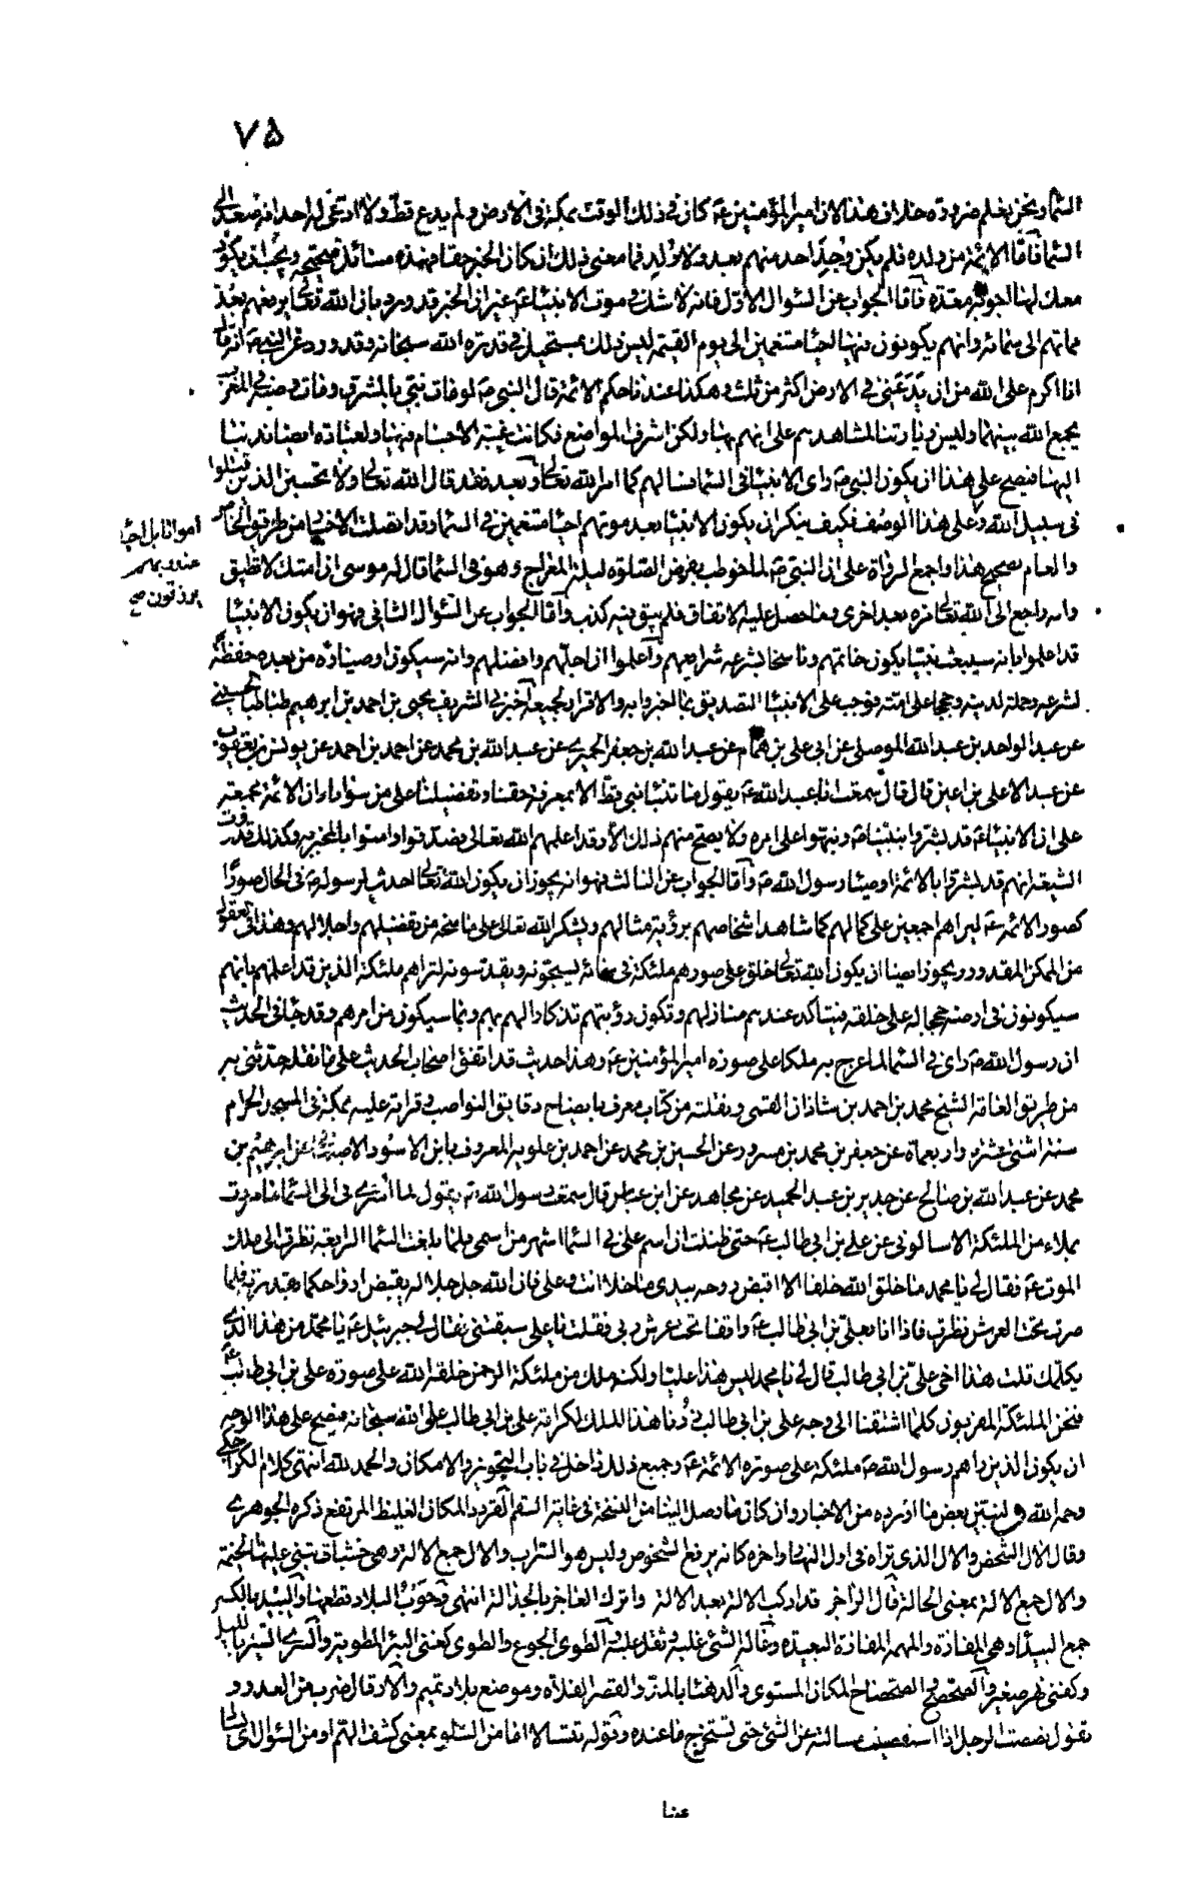 ٧۵
السماء ونحن نعلم ضرورة خلاف هذا لان امير المؤمنين ع كان فى ذلك الوقت بمكة فى الارض ولم يدع قط ولا ادعى له احد انه صعد الى
السماء فاما الائمة من ولده فلم يكن وجد احد منهم بعد ولا ولد فما معنى ذلك ان كان الخبر حقا فهذه مسائل صحيحة ويجب ان يكون
معك لها اجوبة معدة فاما الجواب عن السؤال الاول فانه لا شك فى موت الانبياء ع غير ان الخبر قد ورد بان الله تعالى يرفعهم بعد
مماتهم الى سمائه وانهم يكونون فيها احياء متنعمين الى يوم القيمة ليس ذلك بمستحيل فى قدرة الله سبحانه وقد ورد عن النبى ص انه قال
انا اكرم على الله من ان يدعنى فى الارض اكثر من ثلث وهكذا عندنا حكم الائمة قال النبى ص لو مات نبى بالمشرق ومات وصيه فى المغرب
يجمع الله بينهما وليس زيارتنا لمشاهدهم على انهم بها ولكن لشرف المواضع فكانت غيبة الاجسام فيها ولعبادة ايضا ندبنا
اليها فيصح على هذا ان يكون النبى ص راى الانبياء فى السماء فسالهم كما امره الله تعالى وبعد فقد قال الله تعالى ولا تحسبن الذين قتلوا
فى سبيل الله وعلى هذا الوصف فكيف ينكر ان يكون الانبياء بعد موتهم احياء متنعمين فى السماء وقد اتصلت الاخبار من طريق الخاص
امواتا بل احياء
عند ربهم
يرزقون صح
والعام بصحيح هذا واجمع الرواة على ان النبى ص لما خوطب بفرض الصلوة ليلة المعراج وهو فى السماء قال له موسى ان امتك لا تطيق
وانه راجع الى الله تعالى مرة بعد اخرى وما حصل عليه الاتفاق فلم يبق فيه كذب واما الجواب عن السؤال الثانى فهو ان يكون الانبياء
قد اعلموا بانه سيبعث نبيا يكون خاتمهم وناسخا بشرعه شرايعهم واعلموا انه اجلهم وافضلهم وانه سيكون اوصياؤه من بعده حفظة
لشرعه وحملة لدينه وحججا على امته فوجب على الانبياء التصديق بما اخبروا به والاقرار بجميعه اخبرنى الشريف يحيى بن احمد بن ابرهيم طباطبا الحسينى
عن عبد الواحد بن عبد الله الموصلى عن ابى على بن همام عن عبد الله بن جعفر الحميرى عن عبد الله بن محمد عن احمد بن احمد عن يونس بن يعقوب
عن عبد الاعلى بن اعين قال قال سمعت ابا عبد الله ع يقول ما تنبا نبى قط الا بمعرفة حقنا وتفضيلنا على من سوانا وان الائمة مجمعة
على ان الانبياء ع قد بشروا بنبينا ص ونبهوا على امره ولا يصح منهم ذلك الا وقد اعلمهم الله تعالى فصدقوا وامنوا بالمخبر به وكذلك قد روت
الشيعة انهم قد بشروا بالائمة اوصياء رسول الله ص واما الجواب عن الثالث فهو انه يجوز ان يكون الله تعالى احدث لرسوله ص فى الحال صورا
كصور الائمة ع ليراهم اجمعين على كمالهم كما شاهد اشخاصهم برؤية مثالهم ويشكر الله تعالى على ما منحه من تفضيلهم واجلالهم وهذا فى العقول
من الممكن المقدور ويجوز ايضا ان يكون الله تعالى خلق على صورهم ملئكة فى سمائه يسبحونه ويقدسونه لتراهم ملئكته الذين قد اعلمهم بانهم
سيكونون فى ارضه حججا له على خلقه فيتاكد عندهم منازلهم وتكون رؤيتهم تذكارا لهم بهم وبما سيكون من امرهم وقد جاء فى الحديث
ان رسول الله ص راى فى السماء لما عرج به ملكا على صورة امير المؤمنين ع وهذا حديث قد اتفق اصحاب الحديث على نقله حدثنى به
من طريق العامة الشيخ محمد بن احمد بن شاذان القمى ونقلته من كتاب معرف بايضاح دقايق النواصب وقراته عليه بمكة فى المسجد الحرام
سنة اثنتى عشرة واربعماة عن جعفر بن محمد بن مسرور عن الحسين بن محمد عن احمد بن علويه المعروف بابن الاسود الاصبهانى عن ابرهيم بن
محمد عن عبد الله بن صالح عن جدير بن عبد الحميد عن مجاهد عن ابن عباس قال سمعت رسول الله ص يقول لما اسرى بى الى السماء ما مررت
بملاء من الملئكة الا سالونى عن على بن ابى طالب ع حتى ظننت ان اسم على فى السماء اشهر من اسمى فلما بلغت السماء الرابعة نظرت الى ملك
الموت ع فقال لى يا محمد ما خلق الله خلقا الا اقبض روحه بيدى ما خلا انت وعلى فان الله جل جلاله يقبض ارواحكما بقدرته فلما
صرت تحت العرش نظرت فاذا انا بعلى بن ابى طالب ع واقفا تحت عرش ربى فقلت يا على سبقتنى فقال لى جبرئيل ع يا محمد من هذا الذى
يكلمك قلت هذا اخى على بن ابى طالب قال لى يا محمد ليس هذا عليا ولكنه ملك من ملئكة الرحمن خلقه الله على صورة على بن ابى طالب ع
فنحن الملئكة المقربون كلما اشتقنا الى وجه على بن ابى طالب زرنا هذا الملك لكرامة على بن ابى طالب على الله سبحانه فيصح على هذا الوجه
ان يكون الذين راهم رسول الله ص ملئكة على صورة الائمة ع وجميع ذلك داخل فى باب التجويز والامكان والحمد لله انتهى كلام الكراجكى
رحمه الله ولنبين بعض ما اورده من الاخبار وان كان ما وصل الينا من النسخة فى غاية السقم القردد المكان الغليظ المرتفع ذكره الجوهرى
وقال الال الشخص والال الذى تراه فى اول النهار واخره كانه يرفع الشخوص وليس هو السراب والال جمع الالة وهى خشبات تبنى عليها الخيمة
والال جمع الالة بمعنى الحالة قال الراجز قد اركب الالة بعد الالة واترك العاجز بالجدالة انتهى وجوب البلاد قطعها والبيد بالكسر
جمع البيداء وهى المفازة والمهمه المفازة البعيدة وعاله الشئ غلبه وثقل عليه والطوى الجوع والطوى كغنى البئر المطوية والسرى السير بالليل
وكغنى نهر صغير والصحصح والصحصاح المكان المستوى والدهناء بالمد والقصر الفلاة وموضع ببلاد تميم والارقال ضرب من العدو و
تقول نصصت الرجل اذا استقصيت مسالته عن الشئ حتى تستخرج ما عنده وقوله تفتسالا اما من التسلو بمعنى كشف الهم او من السؤال اى
عنا